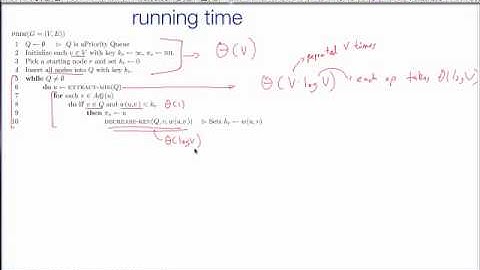 running time
PRIM(G = (V, E))
1 Q ← ∅ ▷ Q is a Priority Queue
2 Initialize each v ∈ V with key kᵥ ← ∞, πᵥ ← NIL
3 Pick a starting node r and set kᵣ ← 0
4 Insert all nodes into Q with key kᵥ.
5 while Q ≠ ∅
6 do u ← EXTRACT-MIN(Q)
7 for each v ∈ Adj(u)
8 do if v ∈ Q and w(u, v) < kᵥ
9 then πᵥ ← u
10 DECREASE-KEY(Q, v, w(u, v)) ▷ Sets kᵥ ← w(u, v)
Θ(V)
repeated V times
Θ(V · log V) each op takes Θ(log V)
Θ(1)
Θ(log V)